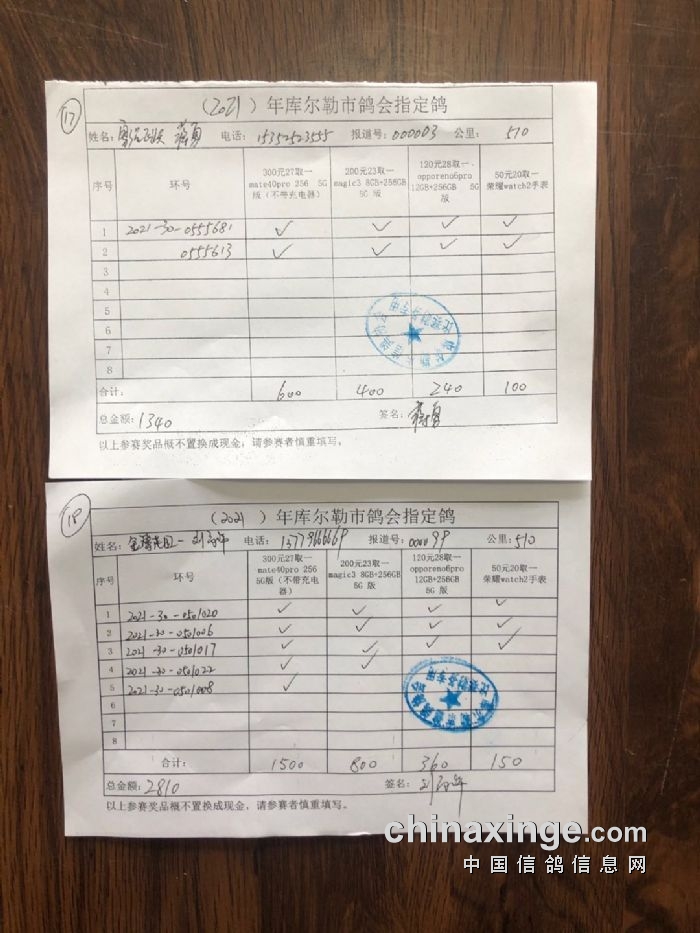 17
(2021)年库尔勒市鸽会指定鸽
姓名: 蒋勇 电话: 15352523555 报道号: 000003 公里: 510
序号 环号 300元27取一 mate40pro 256 5G版(不带充电器) 200元23取一 magic3 8GB+256GB 5G版 120元28取一 opporeno6pro 12GB+256GB 5G版 50元20取一 荣耀watch2手表
1 2021-30-0555681 ✓ ✓ ✓ ✓
2 0555613 ✓ ✓ ✓ ✓
3
4
5
6
7
8
合计: 600 400 240 100
总金额: 1340 签名: 蒋勇
以上参赛奖品概不置换成现金,请参赛者慎重填写。
18
(2021)年库尔勒市鸽会指定鸽
姓名: 电话: 13779666669 报道号: 000099 公里: 510
序号 环号 300元27取一 mate40pro 256 5G版(不带充电器) 200元23取一 magic3 8GB+256GB 5G版 120元28取一 opporeno6pro 12GB+256GB 5G版 50元20取一 荣耀watch2手表
1 2021-30-0501020 ✓ ✓ ✓ ✓
2 2021-30-0501006 ✓ ✓ ✓ ✓
3 2021-30-0501017 ✓ ✓ ✓ ✓
4 2021-30-0501022 ✓ ✓
5 2021-30-0501008 ✓
6
7
8
合计: 1500 800 360 150
总金额: 2810 签名:
以上参赛奖品概不置换成现金,请参赛者慎重填写。
chinaxinge.com
中国信鸽信息网